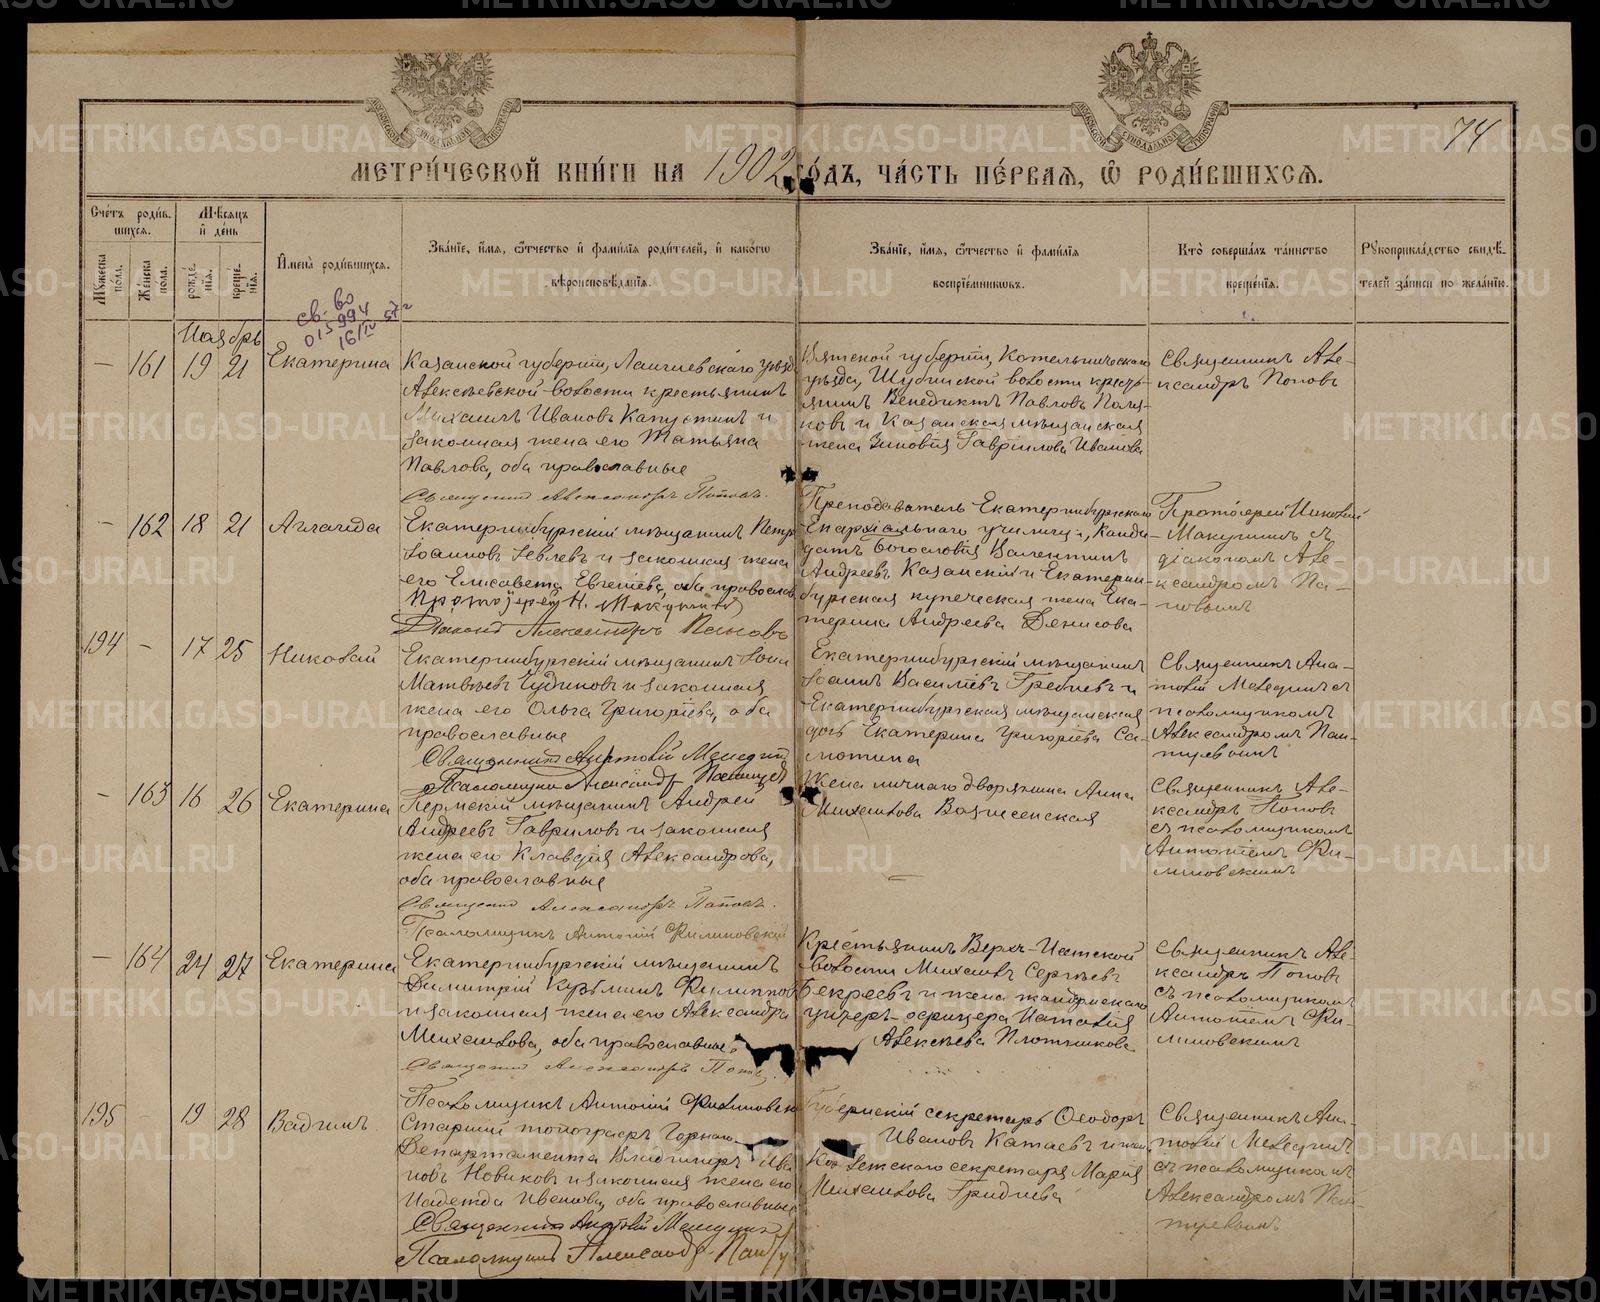 74
МЕТРИ́ЧЕСКОЙ КНИ́ГИ НА 1902 ГО́ДЪ, ЧА́СТЬ ПЕ́РВАЯ, Ѿ РОДИ́ВШИХСЯ.
Сче́тъ роди́в-
шихся.
Му́жеска пола.
Же́нска по́ла.
Мѣ́сяцъ
и де́нь
рожде́нїя.
креще́нїя.
И́мена роди́вшихся.
Зва́нїе, и́мя, ѻ́тчество и фами́лїя роди́телей, и како́гѡ
вѣроисповѣ́данїя.
Зва́нїе, и́мя, ѻ́тчество и фами́лїя
воспрїе́мниковъ.
Кто̀ соверша́лъ та́инство
креще́нїя.
Рꙋкоприкла́дство свидѣ́-
телей за́писи по жела́нїю.
св. во
015994
16/IV 57 г
Ноябрь
— 161 19 21 Екатерина
Казанской губернiи, Лаишевскаго уѣзда
Алексѣевской волости крестьянинъ
Михаилъ Ивановъ Капустинъ и
законная жена его Татьяна
Павлова, оба православные
Священникъ Александръ Поповъ.
Вятской губернiи, Котельническаго
уѣзда, Шубинской волости кресть-
янинъ Венедиктъ Павловъ Поля-
ковъ и Казанская мѣщанская
жена Зиновiя Гаврiилова Иванова
Священникъ Але-
ксандръ Поповъ
— 162 18 21 Аглаида
Екатеринбургскiй мѣщанинъ Петръ
Iоанновъ Iевлевъ и законная жена
его Елисавета Евгенiева, оба православ.
Протоiерей Н. Макушинъ
Дiаконъ Александръ Пановъ
Преподаватель Екатеринбургскаго
Епархiальнаго училища, Канди-
датъ Богословiя Валентинъ
Андреевъ Казанскiй и Екатерин-
бургская купеческая жена Ека-
терина Андреева Денисова
Протоiерей Николай
Макушинъ съ
дiакономъ Але-
ксандромъ Па-
новымъ
194 — 17 25 Николай
Екатеринбургскiй мѣщанинъ Iона
Матвѣевъ Чудиновъ и законная
жена его Ольга Григорiева, оба
православные
Священникъ Анатолiй Мелединъ
Псаломщикъ Александръ
Екатеринбургскiй мѣщанинъ
Iоаннъ Василiевъ Гребневъ и
Екатеринбургская мѣщанская
дочь Екатерина Григорiева Са-
мотина
Священникъ Ана-
толiй Меледин съ
псаломщикомъ
Александромъ Пан-
туевымъ
— 163 16 26 Екатерина
Пермскiй мѣщанинъ Андрей
Андреевъ Гавриловъ и законная
жена его Клавдiя Александрова,
оба православные
Священникъ Александръ Поповъ.
Псаломщикъ Антонiй Филиновскiй
Жена личнаго дворянина Анна
Михаилова Вознесенская
Священникъ Але-
ксандръ Поповъ
съ псаломщикомъ
Антонiемъ Фи-
линовскимъ
— 164 24 27 Екатерина
Екатеринбургскiй мѣщанинъ
Димитрiй Кузьминъ Филиппов
и законная жена его Александра
Михаилова, оба православные
Священникъ Александръ Попов.
Псаломщикъ Антонiй Филиновскiй
Крестьянинъ Верхъ-Исетской
волости Михаилъ Сергѣевъ
Бекреевъ и жена жандрмскаго
унтеръ-офицера Наталiя
Алексѣева Плотникова
Священникъ Але-
ксандръ Поповъ
съ псаломщикомъ
Антонiемъ Фи-
линовскимъ
195 — 19 28 Вадимъ
Старшiй топографъ Горнаго
Департамента Владимiръ Ива-
новъ Новиковъ и законная жена его
Надежда Иванова, оба православные
Священникъ Анатолiй Меледин
Псаломщикъ Александръ Панту
Губернскiй секретарь Ѳеодоръ
Ивановъ Катаевъ и жена
Коллежскаго секретаря Марiя
Михаилова Гриднева
Священникъ Ана-
толiй Меледин
съ псаломщикомъ
Александромъ Пан-
туевымъ
METRIKI.GASO-URAL.RU